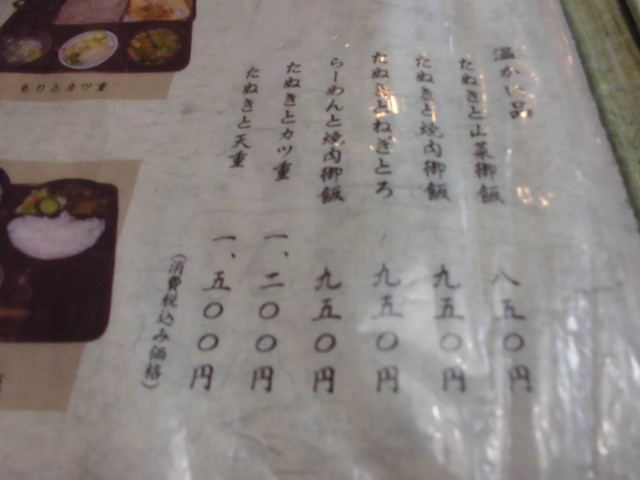 温かい品
たぬきと山菜御飯 八五〇円
たぬきと焼肉御飯 九五〇円
たぬきとねぎとろ 九五〇円
らーめんと焼肉御飯 九五〇円
たぬきとカツ重 一、二〇〇円
たぬきと天重 一、五〇〇円
(消費税込み価格)
もりとカツ重